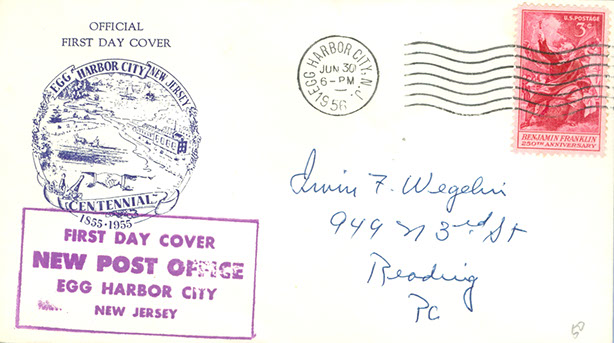 OFFICIAL
FIRST DAY COVER
EGG HARBOR CITY NEW JERSEY
CENTENNIAL
1855·1955
FIRST DAY COVER
NEW POST OFFICE
EGG HARBOR CITY
NEW JERSEY
EGG HARBOR CITY, N.J.
JUN 30
6-PM
1956
U.S. POSTAGE
3¢
BENJAMIN FRANKLIN
250TH ANNIVERSARY
Irvin F. Wegelin
949 N 3rd St
Reading
Pa
50